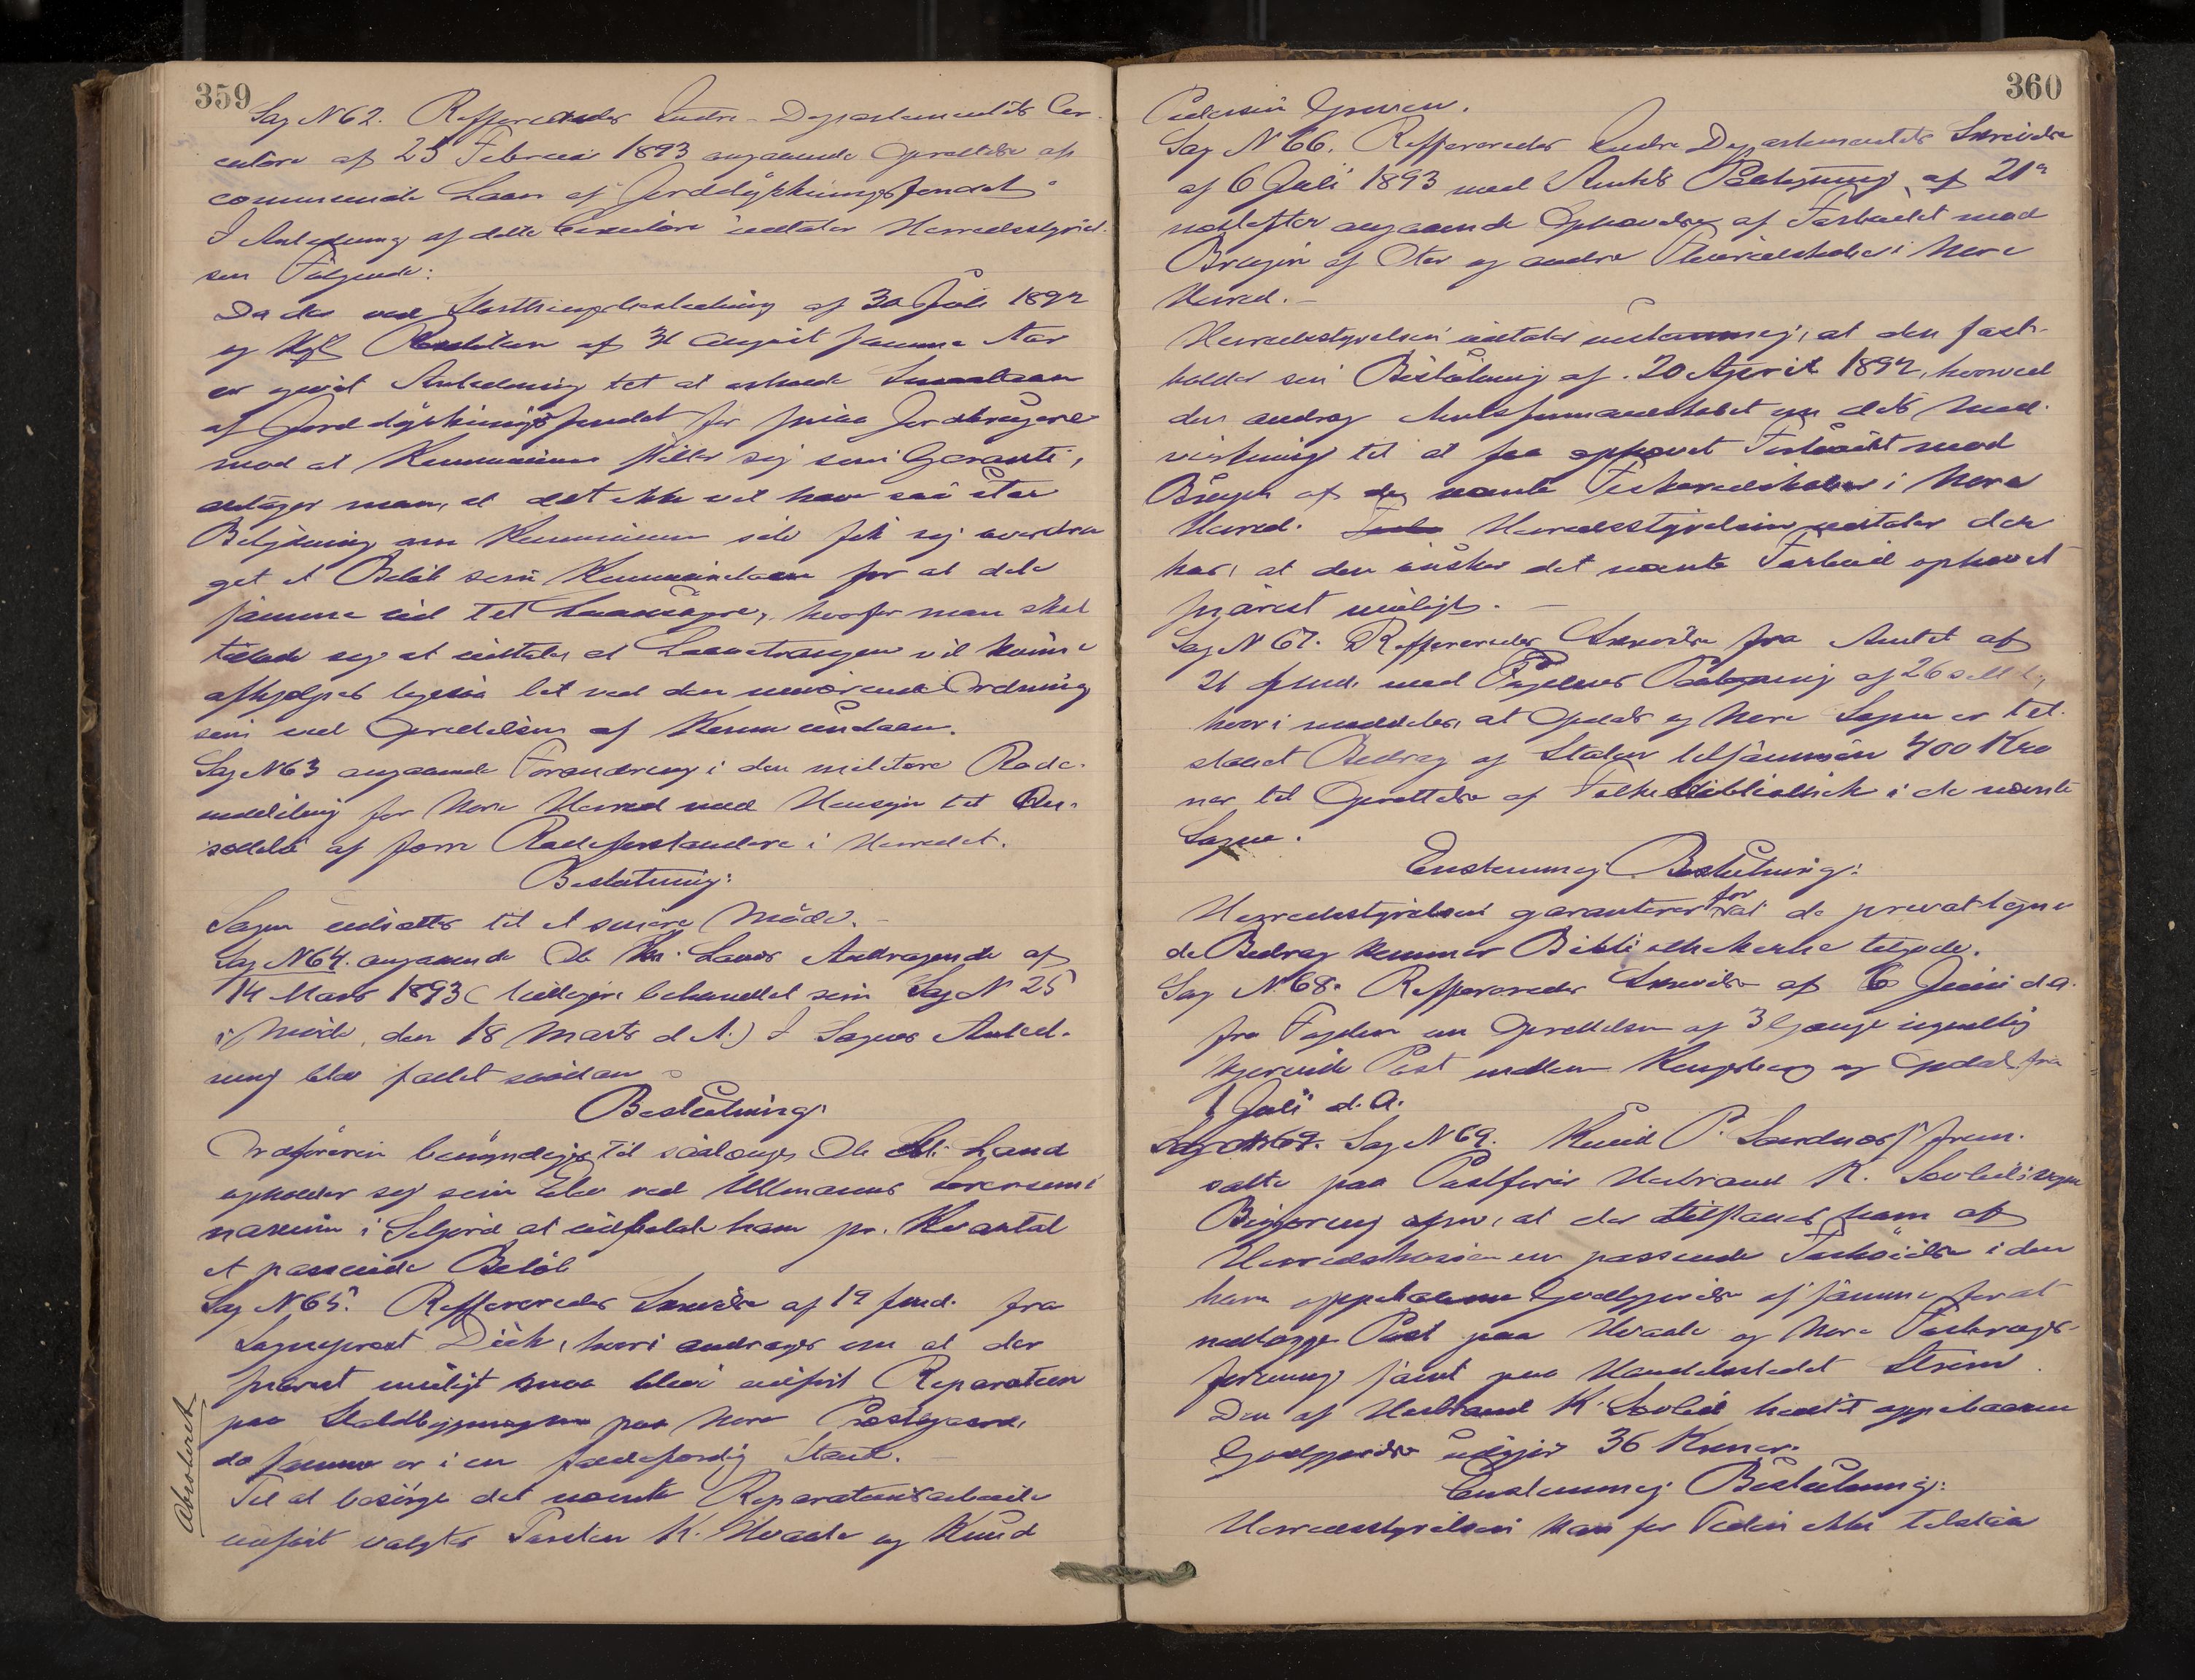 359
Sag N 62. Reffereredes Indre-Departementets Cir-
culære af 25 Februar 1893 angaaende Oprettelse af
communale Laan af Jorddyrkningsfondet.
I Anledning af dette Circulære udtaler Herredsstyrel-
sen Følgende:
Da der ved Storthingsbeslutning af 30 Juli 1892
og Kgl Resolution af 31 August samme Aar
er givet Anledning til at erholde Smaalaan
af Jorddyrkningsfondet for smaa Jordbrugere
mod at Kommunen stiller sig som Garanti,
antager man, at det ikke vil have saa stor
Betydning om Kommunen selv fik sig overdra
get et Beløb som Kommunelaan for at dele
samme ud til Laansøgere, hvorfor man skal
tillade sig at udtale at Laanetrangen vil kunne
afhjælpes ligesaa let ved den nuværende Ordning
som ved Oprettelsen af Kommunelaan.
Sag N 63 angaaende Forandring i den militære Rode-
inddeling for Nore Herred med Hensyn til An-
sættelse af færre Rodeforstandere i Herredet.
Beslutning:
Sagen udsættes til et senere Møde. -
Sag N 64. angaaende Ole Kr. Lands Andragende af
14 Marts 1893 (tidligere behandlet som Sag N 25
i Møde, den 18 Marts d. A.) I Sagens Anled-
ning blev fattet saadan
Beslutning:
Ordføreren bemyndiges til saalænge Ole Kr. Land
opholder sig som Elev ved Ullmanns Lærersemi-
narium i Seljord at udbetale ham pr. Kvartal
et passende Beløb
Sag N 65. Reffereredes Skrivelse af 19 fmd. fra
Sogneprest Dick, hvori andrages om at der
snarest muligt maa blive udført Reparation
paa Staldbygningen paa Nore Præstegaard,
da samme er i en faldefærdig Stand. -
Til at besørge det nævnte Reparationsarbeide
udført valgtes Torsten K. Hvaale og Knud
Absolveret
360
Pedersen Green.
Sag N 66. Reffereredes Indre Departementets Skrivelse
af 6 Juli 1893 med Amtets Paategning af 21de
næstefter angaaende Ophævelse af Forbudet mod
Brugen af Oter og andre Fiskeredskaber i Nore
Herred. -
Herredsstyrelsen udtaler enstemmig, at den fast-
holder sin Beslutning af 20 April 1892, hvorved
den androg Amtsformandskabet om dets Med-
virkning til at faa ophævet Forbudet mod
Brugen af de nævnte Fiskeredskaber i Nore
Herred. Herredsstyrelsen udtaler der
for, at den ønsker det nævnte Forbud ophævet
snarest muligt. -
Sag N 67. Reffereredes Skrivelse fra Amtet af
21 fmd. med Fogdens Paategning af 26 s. M.,
hvori meddeles, at Opdals og Nore Sogne er til-
staaet Bidrag af Staten tilsammen 400 Kro
ner til Oprettelse af Folkebibliothek i de nævnte
Sogne.
Enstemmig Beslutning:
Herredsstyrelsen garanterer for at de privat tegne
de Bidrag kommer Bibliothekerne tilgode.
Sag N 68. Reffereredes Skrivelse af 6 Juni d. a.
fra Fogden om Oprettelsen af 3 Gange ugentlig
kjørende Post mellem Kongsberg og Opdal fra
1 Juli d. A.
Sag N 69. Sag N 69. Knud P. Sandnæs frem-
satte paa Postfører Herbrand K. Sevleds Vegne
Begjæring om, at der tilstaaes ham af
Herredskassen en passende Forhøielse i den
ham oppebaarne Godtgjørelse af samme for at
nedlægge Post paa Hvaale og Nore
samt paa Handelsstedet Strøm.
Den af Herbrand K. Sevled hidtil oppebaarne
Godtgjørelse udgjør 36 Kroner.
Enstemmig Beslutning:
Herredsstyrelsen kan for Tiden ikke tilstaa